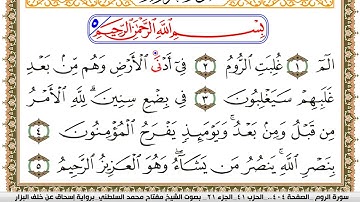 بِسْمِ ٱللَّهِ ٱلرَّحْمَٰنِ ٱلرَّحِيمِ ٥
الٓمٓ ١ غُلِبَتِ ٱلرُّومُ ٢ فِىٓ أَدْنَى ٱلْأَرْضِ وَهُم مِّنۢ بَعْدِ
غَلَبِهِمْ سَيَغْلِبُونَ ٣ فِى بِضْعِ سِنِينَ ۗ لِلَّهِ ٱلْأَمْرُ
مِن قَبْلُ وَمِنۢ بَعْدُ ۚ وَيَوْمَئِذٍ يَفْرَحُ ٱلْمُؤْمِنُونَ ٤
بِنَصْرِ ٱللَّهِ ۚ يَنصُرُ مَن يَشَآءُ ۖ وَهُوَ ٱلْعَزِيزُ ٱلرَّحِيمُ ٥
سورة الروم _ الصفحة ٤٠٤ _ الحزب ٤١ _ الجزء ٢١ _ بصوت الشيخ مفتاح محمد السلطني _ برواية إسحاق عن خلف البزار